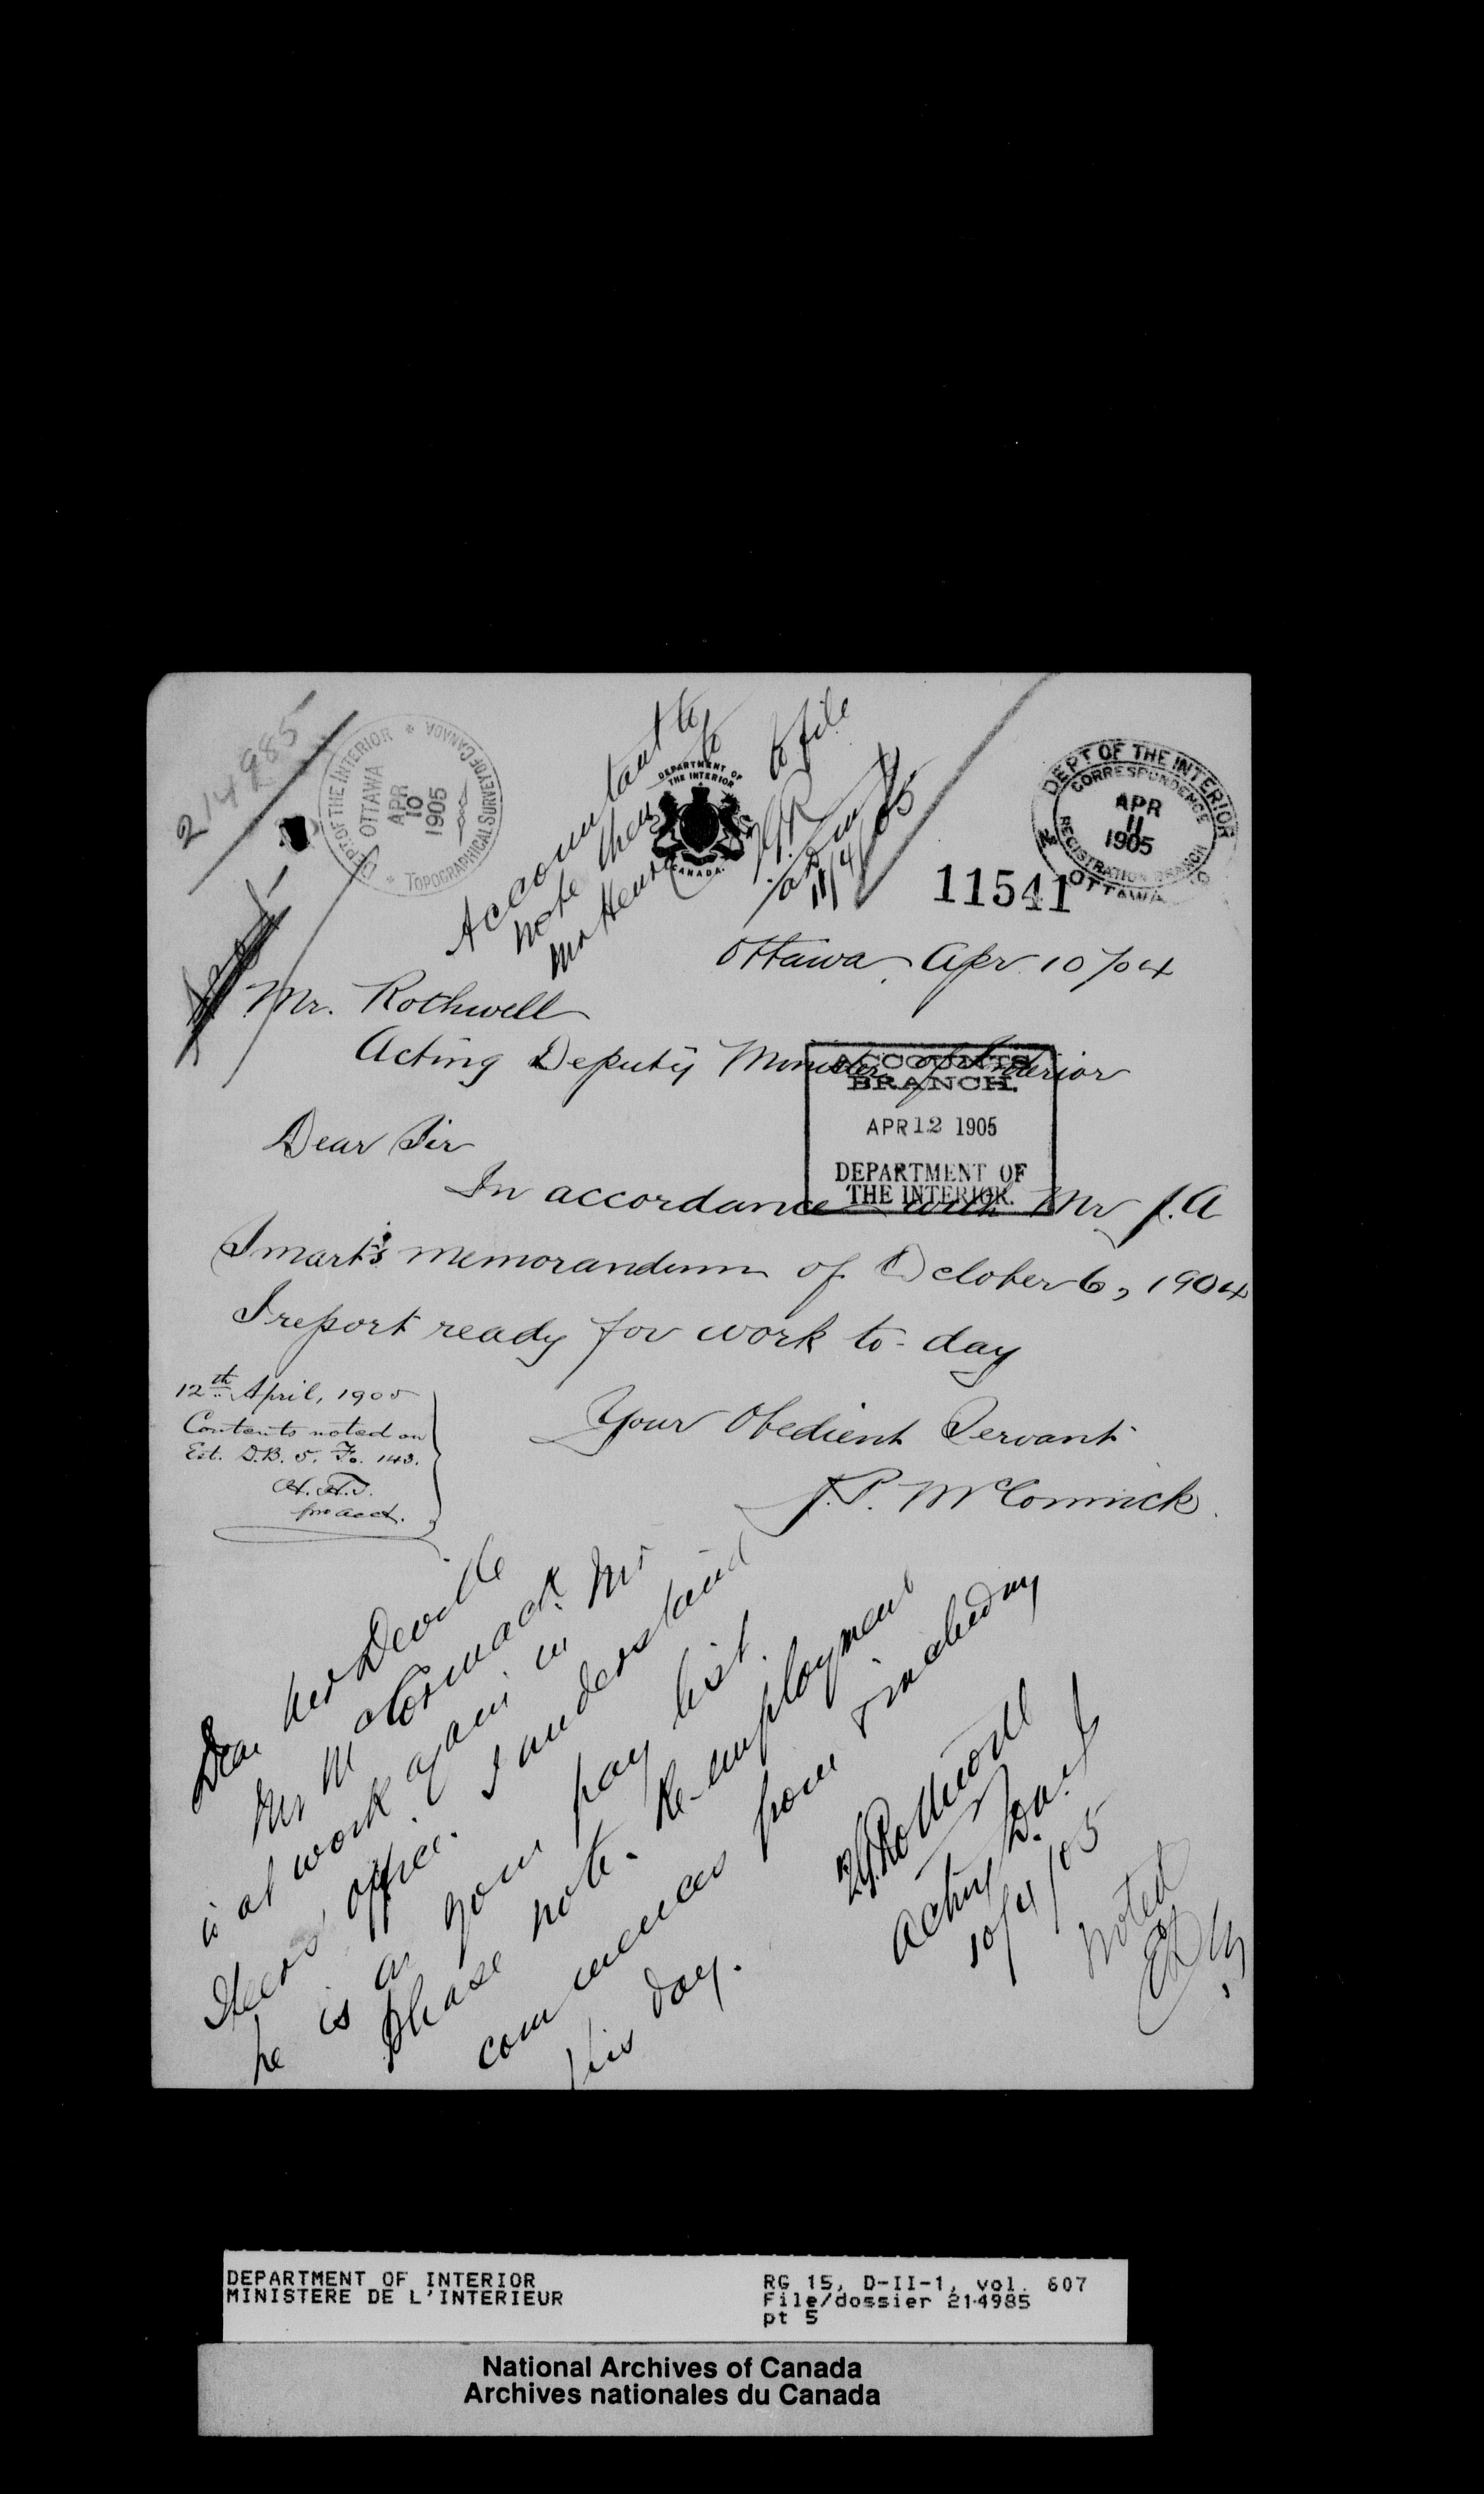 214985
DEPT. OF THE INTERIOR
OTTAWA
APR
10
1905
TOPOGRAPHICAL SURVEY OF CANADA
Accountant to
note then to
Mr Henry
to file
11/4/05
DEPARTMENT OF
THE INTERIOR
CANADA.
DEPT OF THE INTERIOR
CORRESPONDENCE
APR
11
1905
REGISTRATION BRANCH
OTTAWA
11541
Ottawa, Apr 10/04
Mr. Rothwell
Acting Deputy Minister of Interior
ACCOUNTS
BRANCH.
APR 12 1905
DEPARTMENT OF
THE INTERIOR.
Dear Sir
In accordance with Mr J.A
Smart's memorandum of October 6, 1904
I report ready for work to-day
Your Obedient Servant
J.P. McCormick.
12th April, 1905
Contents noted on
Est. D.B. 5. Fo. 143.
for acct.
Dear Mr Deville
Mr McCormack
is at work again in Mr
office. I understand
he is on your pay list.
Please note. Re-employment
commences from & including
this day.
Rothwell
Acting D.
10/4/05
Noted
DEPARTMENT OF INTERIOR
MINISTERE DE L'INTERIEUR
RG 15, D-II-1, vol. 607
File/dossier 214985
pt 5
National Archives of Canada
Archives nationales du Canada